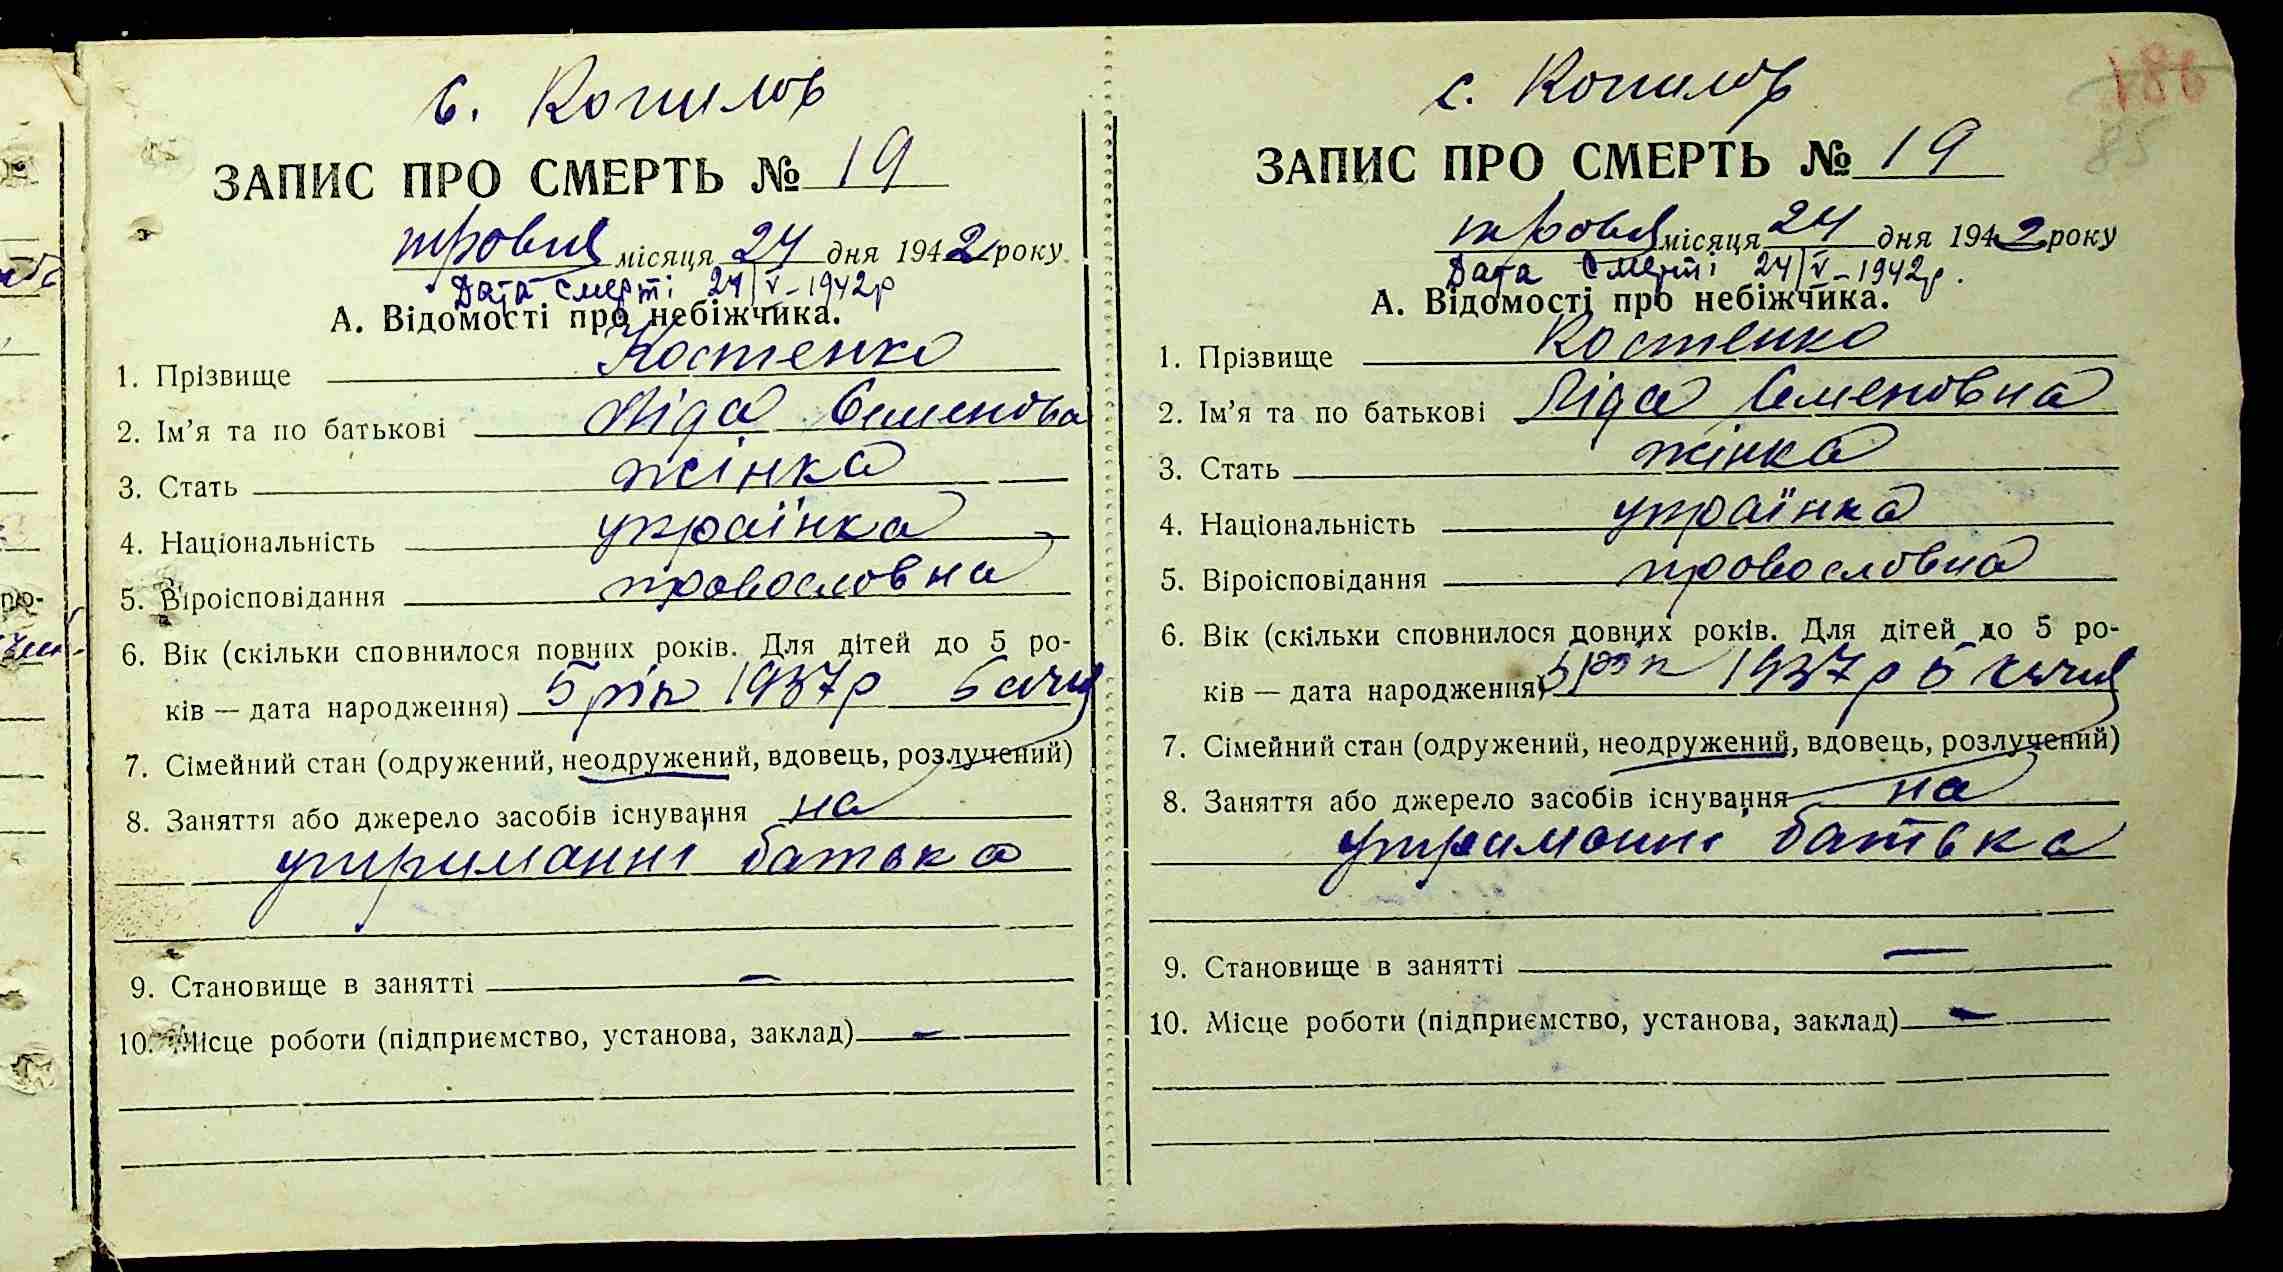 с. Копилов
ЗАПИС ПРО СМЕРТЬ № 19
тровня місяця 24 дня 1942 року
Дата смерті 24/V-1942р
А. Відомості про небіжчика.
1. Прізвище Костенко
2. Ім'я та по батькові Ліда Семеновна
3. Стать жінка
4. Національність українка
5. Віроісповідання провословна
6. Вік (скільки сповнилося повних років. Для дітей до 5 ро-
ків — дата народження) 5 рік 1937р 5 січня
7. Сімейний стан (одружений, неодружений, вдовець, розлучений)
8. Заняття або джерело засобів існування на
утриманні батька
9. Становище в занятті —
10. Місце роботи (підприємство, установа, заклад) -
с. Копилов
186
85
ЗАПИС ПРО СМЕРТЬ № 19
тровня місяця 24 дня 1942 року
Дата смерті 24/V-1942р.
А. Відомості про небіжчика.
1. Прізвище Костенко
2. Ім'я та по батькові Ліда Семеновна
3. Стать жінка
4. Національність українка
5. Віроісповідання провословна
6. Вік (скільки сповнилося повних років. Для дітей до 5 ро-
ків — дата народження) 5 рік 1937р 5 січня
7. Сімейний стан (одружений, неодружений, вдовець, розлучений)
8. Заняття або джерело засобів існування на
утриманні батька
9. Становище в занятті —
10. Місце роботи (підприємство, установа, заклад) -